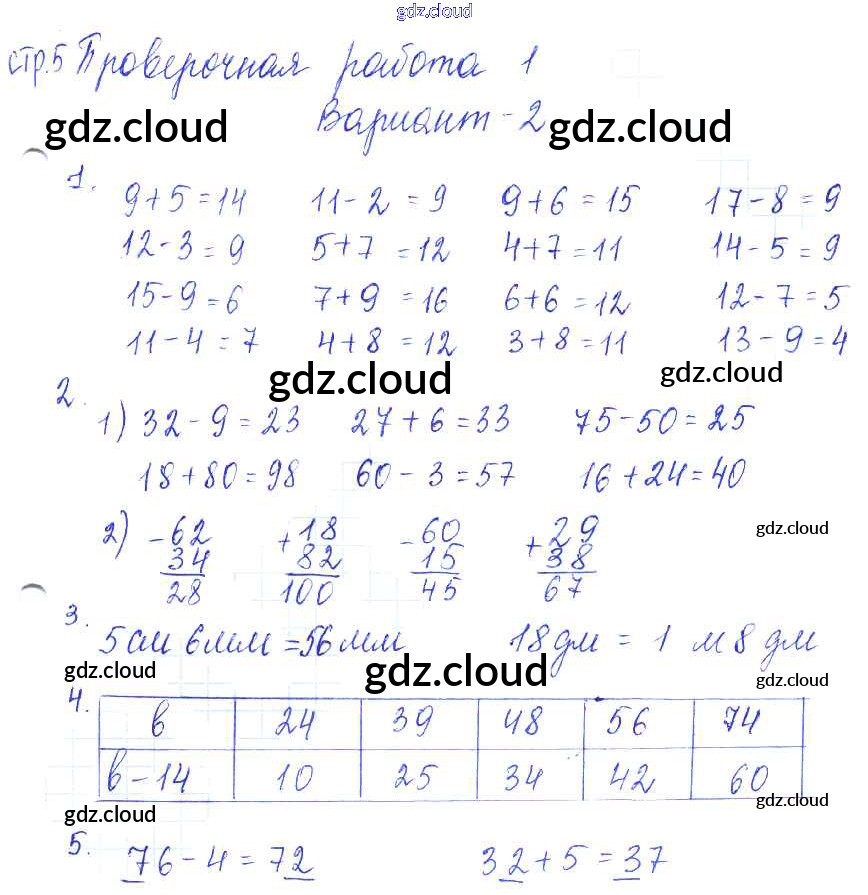 gdz.cloud
стр.5 Проверочная работа 1
gdz.cloud Вариант - 2 gdz.cloud
1.
9+5=14 11-2=9 9+6=15 17-8=9
12-3=9 5+7=12 4+7=11 14-5=9
15-9=6 7+9=16 6+6=12 12-7=5
11-4=7 4+8=12 3+8=11 13-9=4
gdz.cloud gdz.cloud
2.
1) 32-9=23 27+6=33 75-50=25
18+80=98 60-3=57 16+24=40
2) -62 +18 -60 +29 gdz.cloud
34 82 15 38
28 100 45 67
3.
5 см 6 мм = 56 мм 18 дм = 1 м 8 дм
gdz.cloud gdz.cloud gdz.cloud
4.
в 24 39 48 56 74
в-14 10 25 34 42 60
gdz.cloud gdz.cloud
5.
76-4=72 32+5=37
gdz.cloud